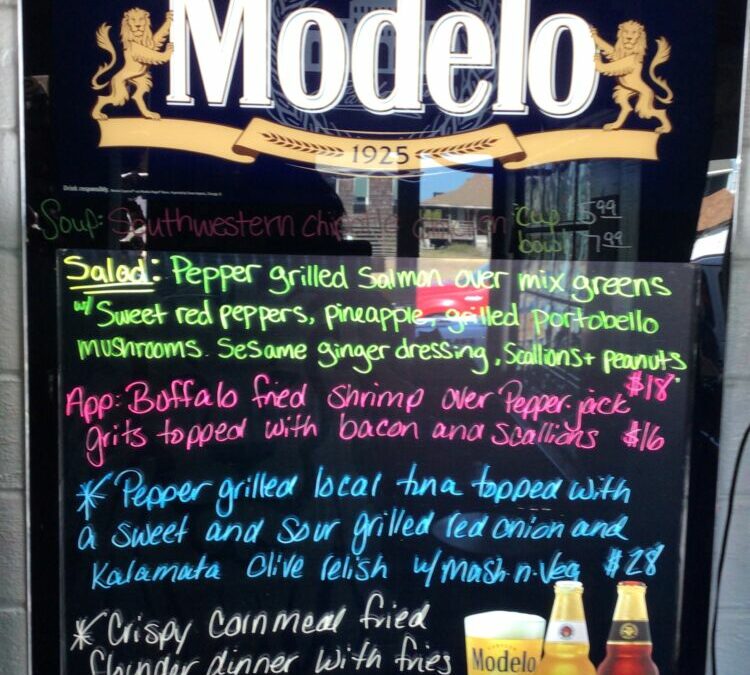 Modelo
1925
Drink responsibly.
Soup: Southwestern chipotle chicken cup 5.99
bowl 7.99
Salad: Pepper grilled Salmon over mix greens
w/ Sweet red peppers, pineapple, grilled portobello
mushrooms. Sesame ginger dressing, Scallions + peanuts
$18
App: Buffalo fried shrimp over Pepper jack
grits topped with bacon and scallions $16
* Pepper grilled local tuna topped with
a sweet and sour grilled red onion and
Kalamata Olive relish w/ Mash-n-Veg $28
* Crispy Cornmeal fried
flounder dinner with fries
Modelo